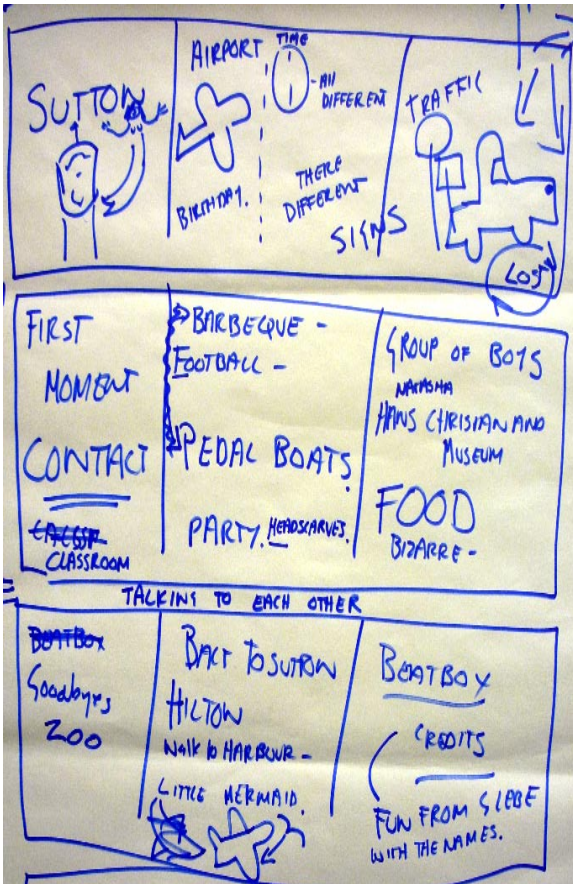 SUTTON
AIRPORT
BIRTHDAY.
TIME
- All
DIFFERENT
THERE
DIFFERENT
SIGNS
TRAFFIC
LOST
FIRST
MOMENT
CONTACT
CLASSROOM
BARBEQUE -
FOOTBALL -
PEDAL BOATS.
PARTY. HEADSCARVES.
GROUP OF BOYS
NATASHA
HANS CHRISIAN AND
MUSEUM
FOOD
BIZARRE -
TALKING TO EACH OTHER
BEATBOX
Goodbyes
ZOO
BACK TO SUTTON
HILTON
Walk to HARBOUR -
LITTLE MERMAID.
BEATBOX
CREDITS
FUN FROM GLEBE
WITH THE NAMES.